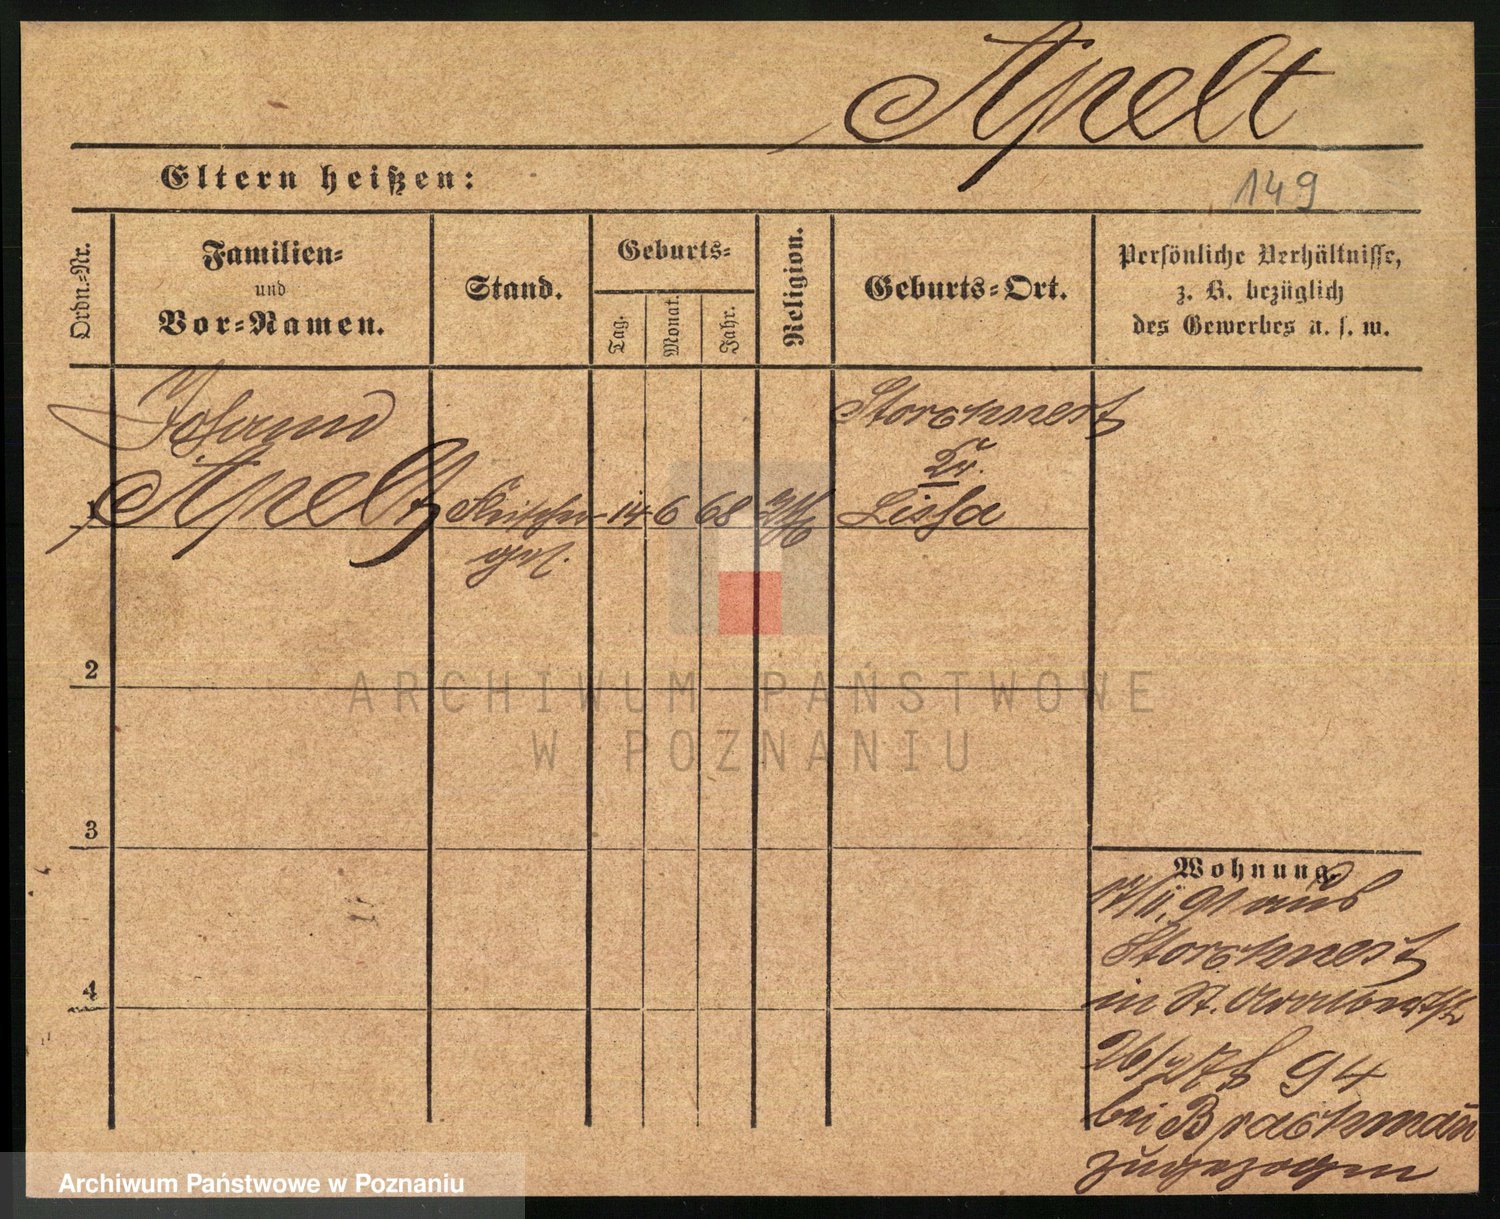 Apelt
Eltern heißen:
149
Ordn.-Nr.
Familien-
und
Vor-Namen.
Stand.
Geburts-
Tag.
Monat.
Jahr.
Religion.
Geburts-Ort.
Persönliche Verhältnisse,
z. B. bezüglich
des Gewerbes u. s. w.
Johann
Apelt
1
14 6 68
Storchnest
Kr.
Lissa
2
3
4
Wohnung.
91 aus
Storchnest
in St.
94
bei Brachmann
zugezogen
ARCHIWUM PAŃSTWOWE
W POZNANIU
Archiwum Państwowe w Poznaniu